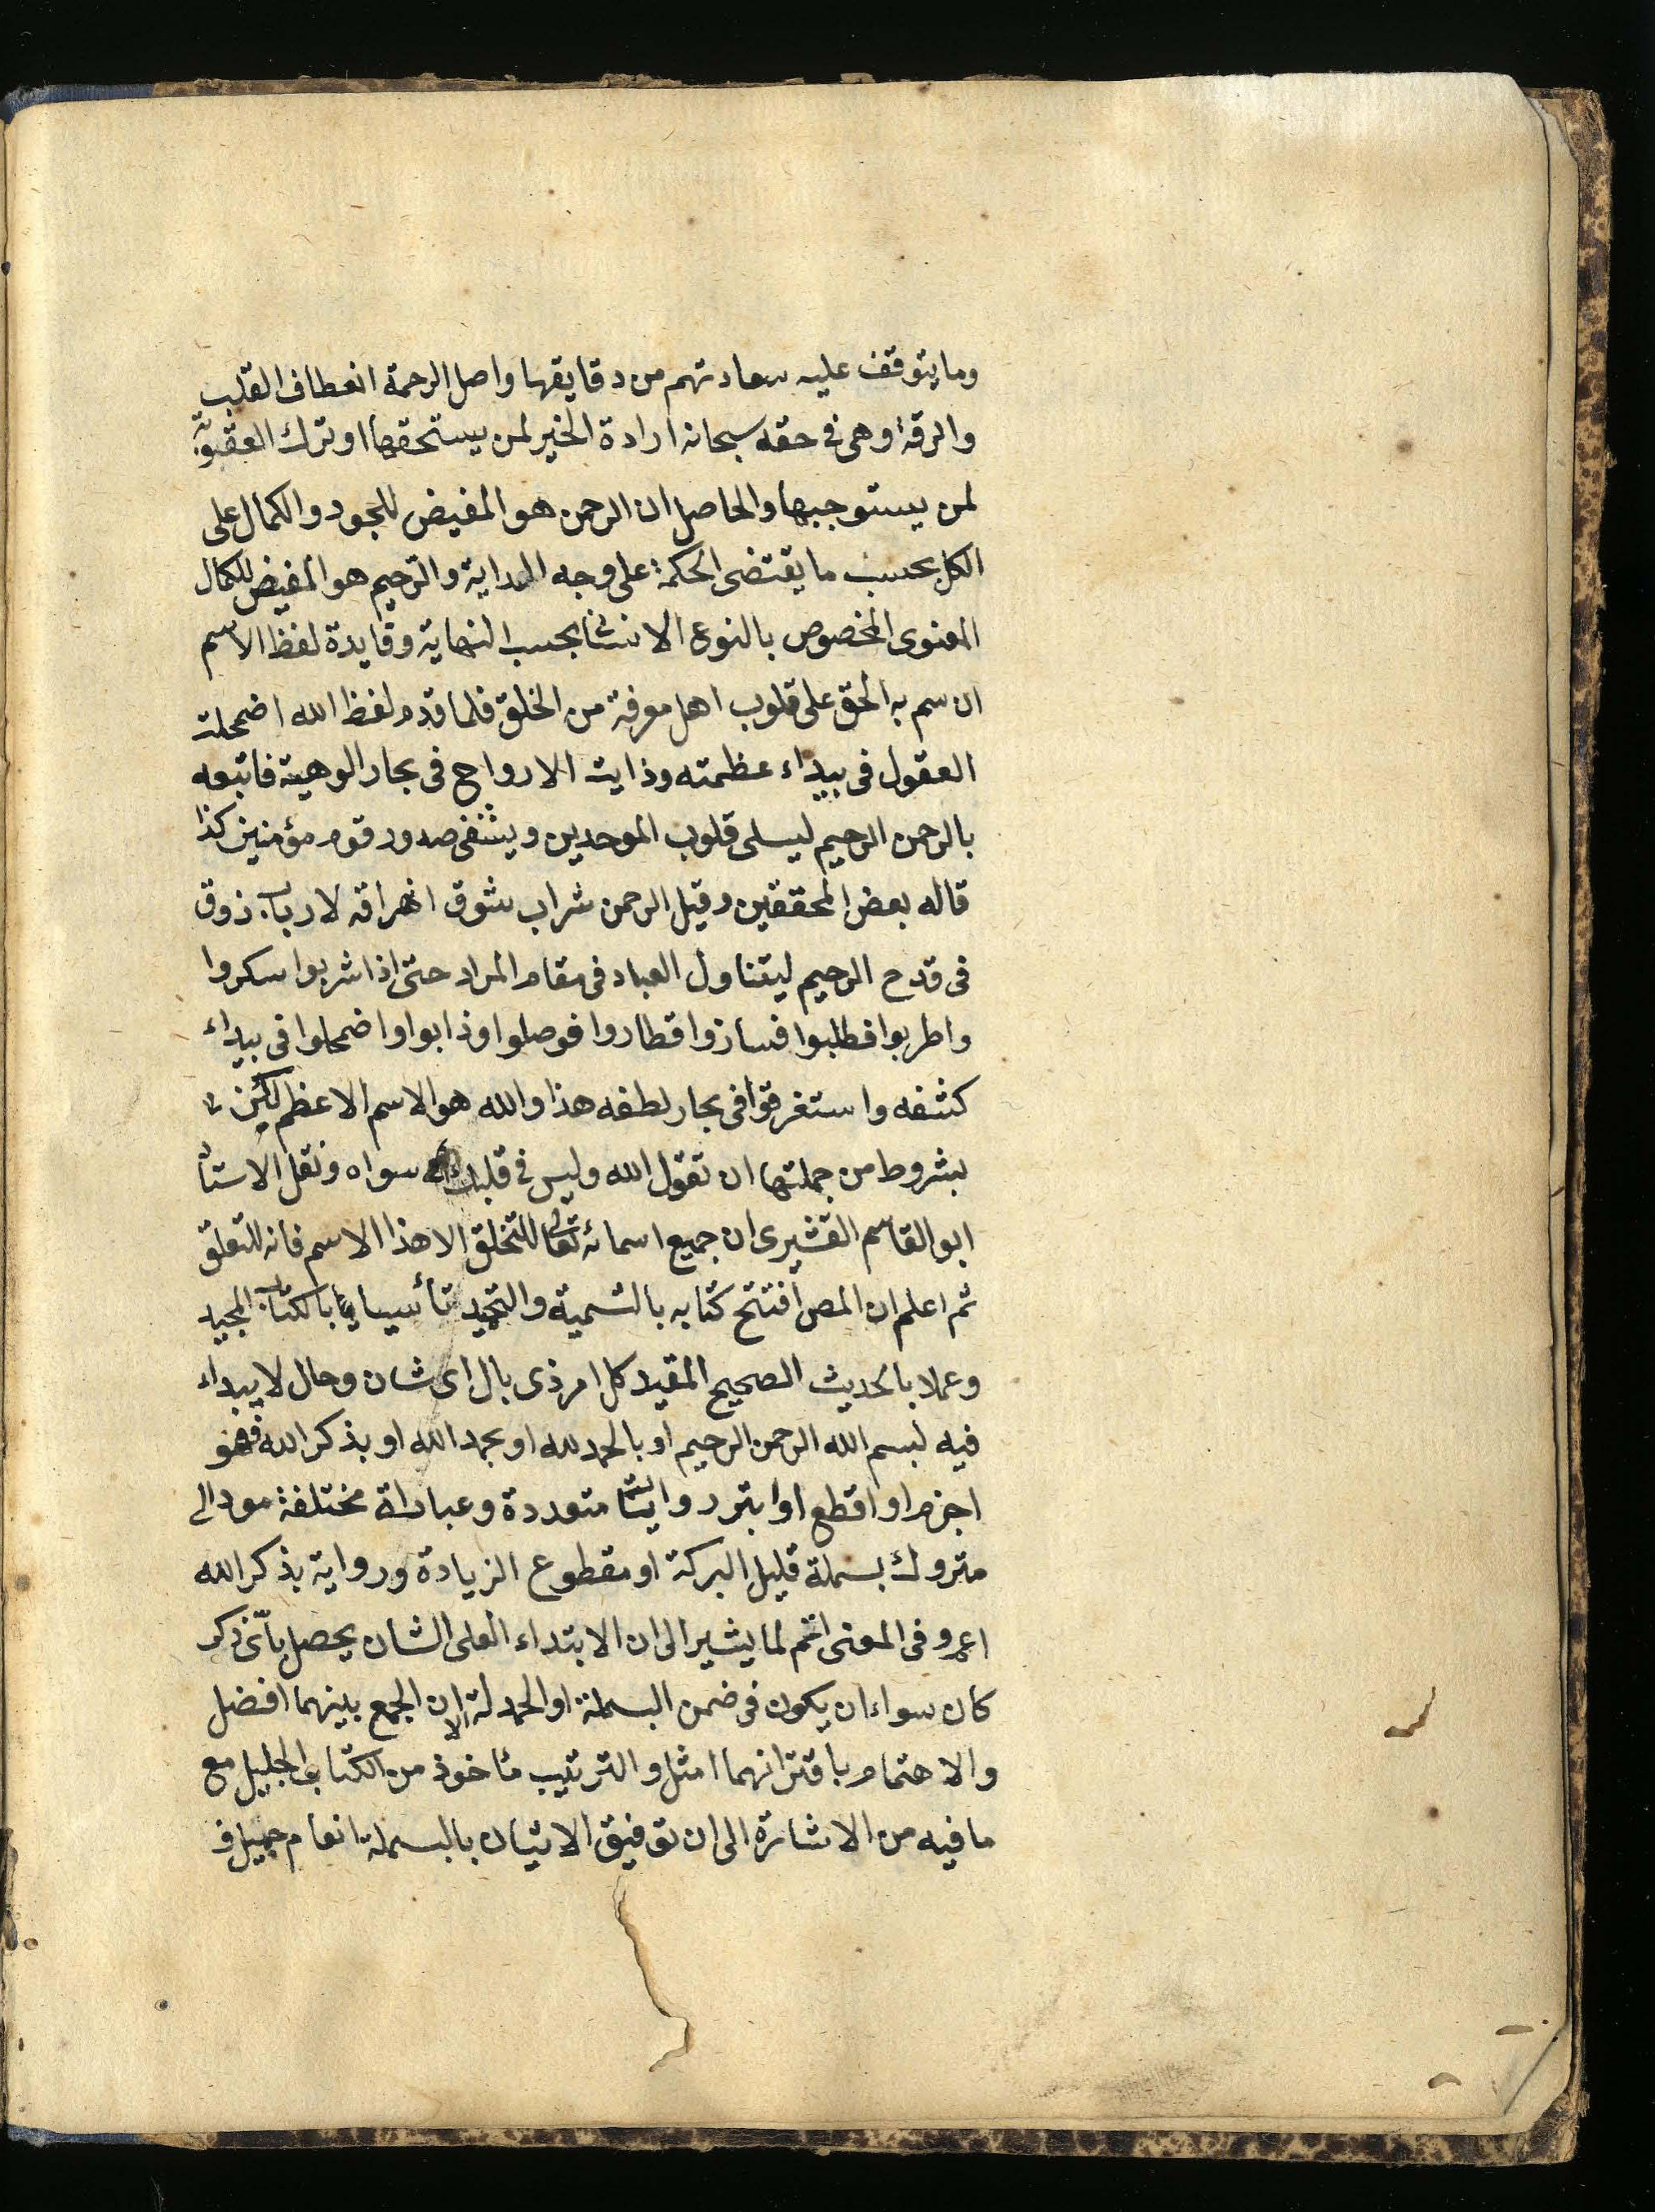 وما يتوقف عليه سعادتهم من دقايقها واصل الرحمة انعطاف القلب
والرقة وهى فى حقه سبحانه ارادة الخير لمن يستحقها او ترك العقوبة
لمن يستوجبها والحاصل ان الرحمن هو المفيض للجود والكمال على
الكل بحسب ما يقتضى الحكمة على وجه البداية والرحيم هو المفيض للكمال
المعنوى المخصوص بالنوع الانسانى بحسب النهاية وفايدة لفظ الاسم
ان سم به الحق على قلوب اهل معرفة من الخلق فلما قدم لفظ الله اضمحلت
العقول فى بيداء عظمته وذابت الارواح فى بحار الوهية فاتبعه
بالرحمن الرحيم ليسلى قلوب الموحدين ويشفى صدور قوم مؤمنين كذا
قاله بعض المحققين وقيل الرحمن شراب شوق اهراقه لارباب ذوق
فى قدح الرحيم ليتناول العباد فى مقام المراد حتى اذا شربوا سكروا
واطربوا فطلبوا فسازوا فطاروا فوصلوا وذابوا واضمحلوا فى بيداء
كشفه واستغرقوا فى بحار لطفه هذا والله هو الاسم الاعظم لكن
بشروط من جملتها ان تقول الله وليس فى قلبك سواه ونقل الاستاد
ابو القاسم القشيرى ان جميع اسمائه تعالى للتخلق الا هذا الاسم فانه للتعلق
ثم اعلم ان المص افتتح كتابه بالتسمية والتحميد تأسيا بالكتاب المجيد
وعملا بالحديث الصحيح المقيد كل امر ذى بال اى شان وحال لا يبداء
فيه لبسم الله الرحمن الرحيم او بالحمد لله او بحمد الله او بذكر الله فهو
اجزم او اقطع او ابتر روايتا متعددة وعباراة مختلفة مودالى
متروك بسملة قليل البركة او مقطوع الزيادة ورواية بذكر الله
اعم وفى المعنى اتم لما يشير الى ان الابتداء العلى الشان يحصل باىّ ذكر
كان سواء ان يكون فى ضمن البسملة او الحمدلة الا ان الجمع بينهما افضل
والاهتمام باقترانهما امثل والترتيب مئاخوذ من الكتاب الجليل مع
ما فيه من الاشارة الى ان توفيق الاتيان بالبسملة انعام جميل و